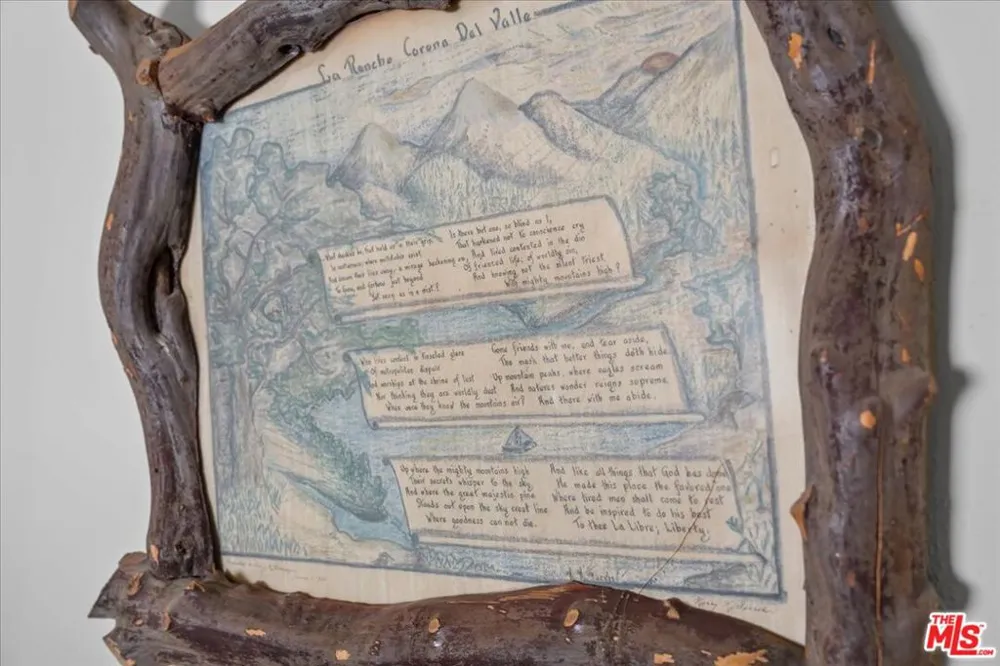 La Rancho Corona Del Valle
What should be, that held in it their grip,
In nothingness where multitudes exist
And dream their lives away; a mirage beckoning on,
To fame and fortune just beyond
But empty as is a mist?
Is there but one, so blind as I,
That harkened not to conscience cry
And lived contented in the din
Of frienzed life, of worldly sin,
And knowing not the silent triest
With mighty mountains high?
Who lives amidst a tinseled glare
Of metropolitan dispair
And worships at the shrine of lust
Nor thinking they are worldly dust
When once they knew the mountains air?
Come friends with me, and tear aside,
The mask that better things doth hide.
Up mountain peaks, where eagles scream
And natures wonder reigns supreme,
And there with me abide.
Up where the mighty mountains high
Their secrets whisper to the sky
And where the great majestic pine
Stands out upon the sky crest line
Where goodness can not die.
And like all things that God has done
He made this place the favored one
Where tired men shall come to rest
And be inspired to do his best
To thee La Libre, Liberty.
THE
MLS
.COM